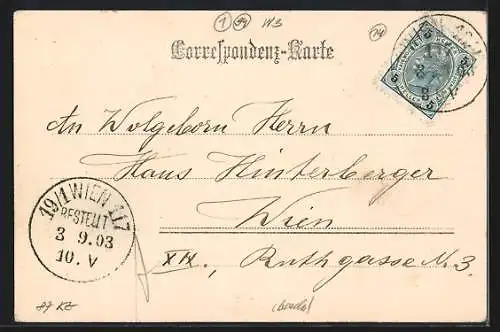 1 94 W3 14
Correspondenz-Karte
5 5 5
An Wolgeborn Herrn
Hans Hinterberger
Wien
XIX, Ruthgasse N. 3.
19/1 WIEN 117
BESTELLT
3 9.03
10. V
87 KZ